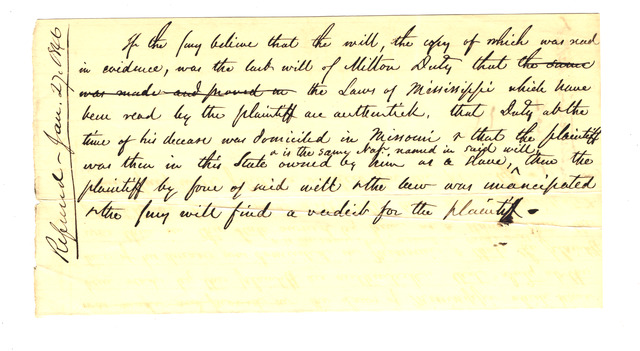 If the jury believe that the will, the copy of which was read
in evidence, was the last will of Milton Duty that the same
was made and proved in the Laws of Mississippi which have
been read by the plaintiff are authentick, that Duty at the
time of his decease was domiciled in Missouri & that the plaintiff
& is the same Nat. named in said will
was then in this State owned by him as a slave, then the
plaintiff by force of said will & the law was emancipated
& the jury will find a verdict for the plaintiff.
Refused - Jan. 27. 1846